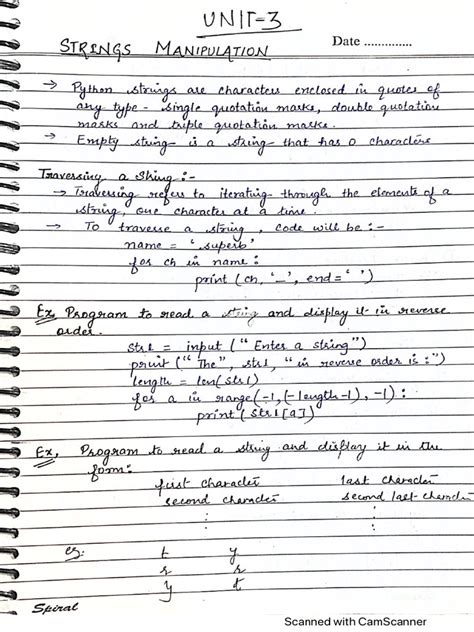 UNIT-3
STRINGS MANIPULATION Date ..............
→ Python strings are characters enclosed in quotes of
any type - single quotation marks, double quotation
marks and triple quotation marks.
→ Empty string is a string that has 0 characters
Traversing a String :-
→ Traversing refers to iterating through the elements of a
string, one character at a time.
→ To traverse a string, code will be :-
name = 'superb'
for ch in name :
print (ch, '_', end = ' ')
Ex. Program to read a string and display it in reverse
order.
str1 = input ("Enter a string")
print ("The", str1, "in reverse order is :")
length = len(str1)
for a in range(-1, (-length-1), -1) :
print (str1[a])
Ex. Program to read a string and display it in the
form:
first character last character
second character second last character
: :
eg: t y
r r
y t
Spiral
Scanned with CamScanner